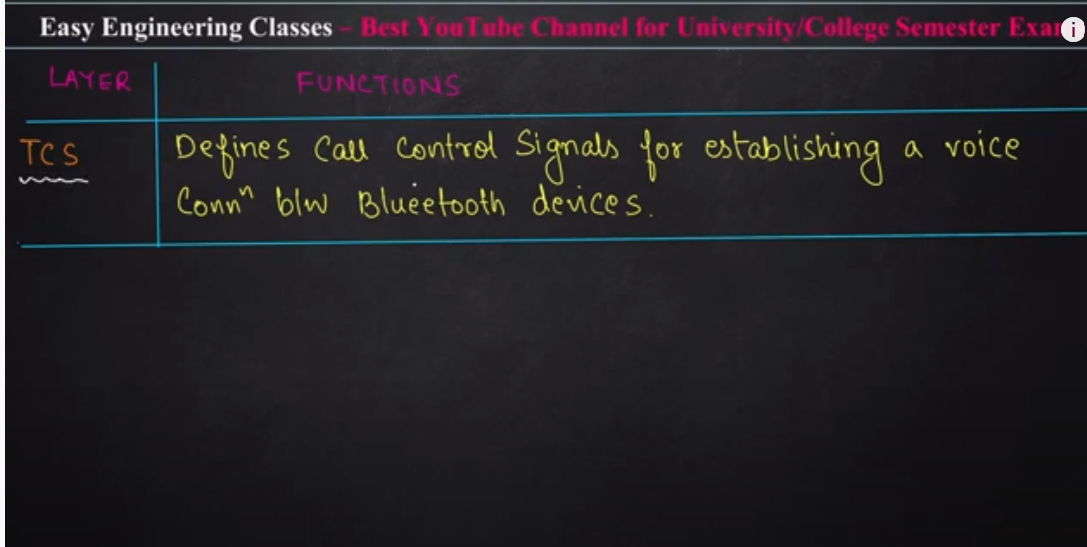 Easy Engineering Classes – Best YouTube Channel for University/College Semester Exam
LAYER FUNCTIONS
TCS Defines Call Control Signals for establishing a voice
Connⁿ b/w Blueetooth devices.